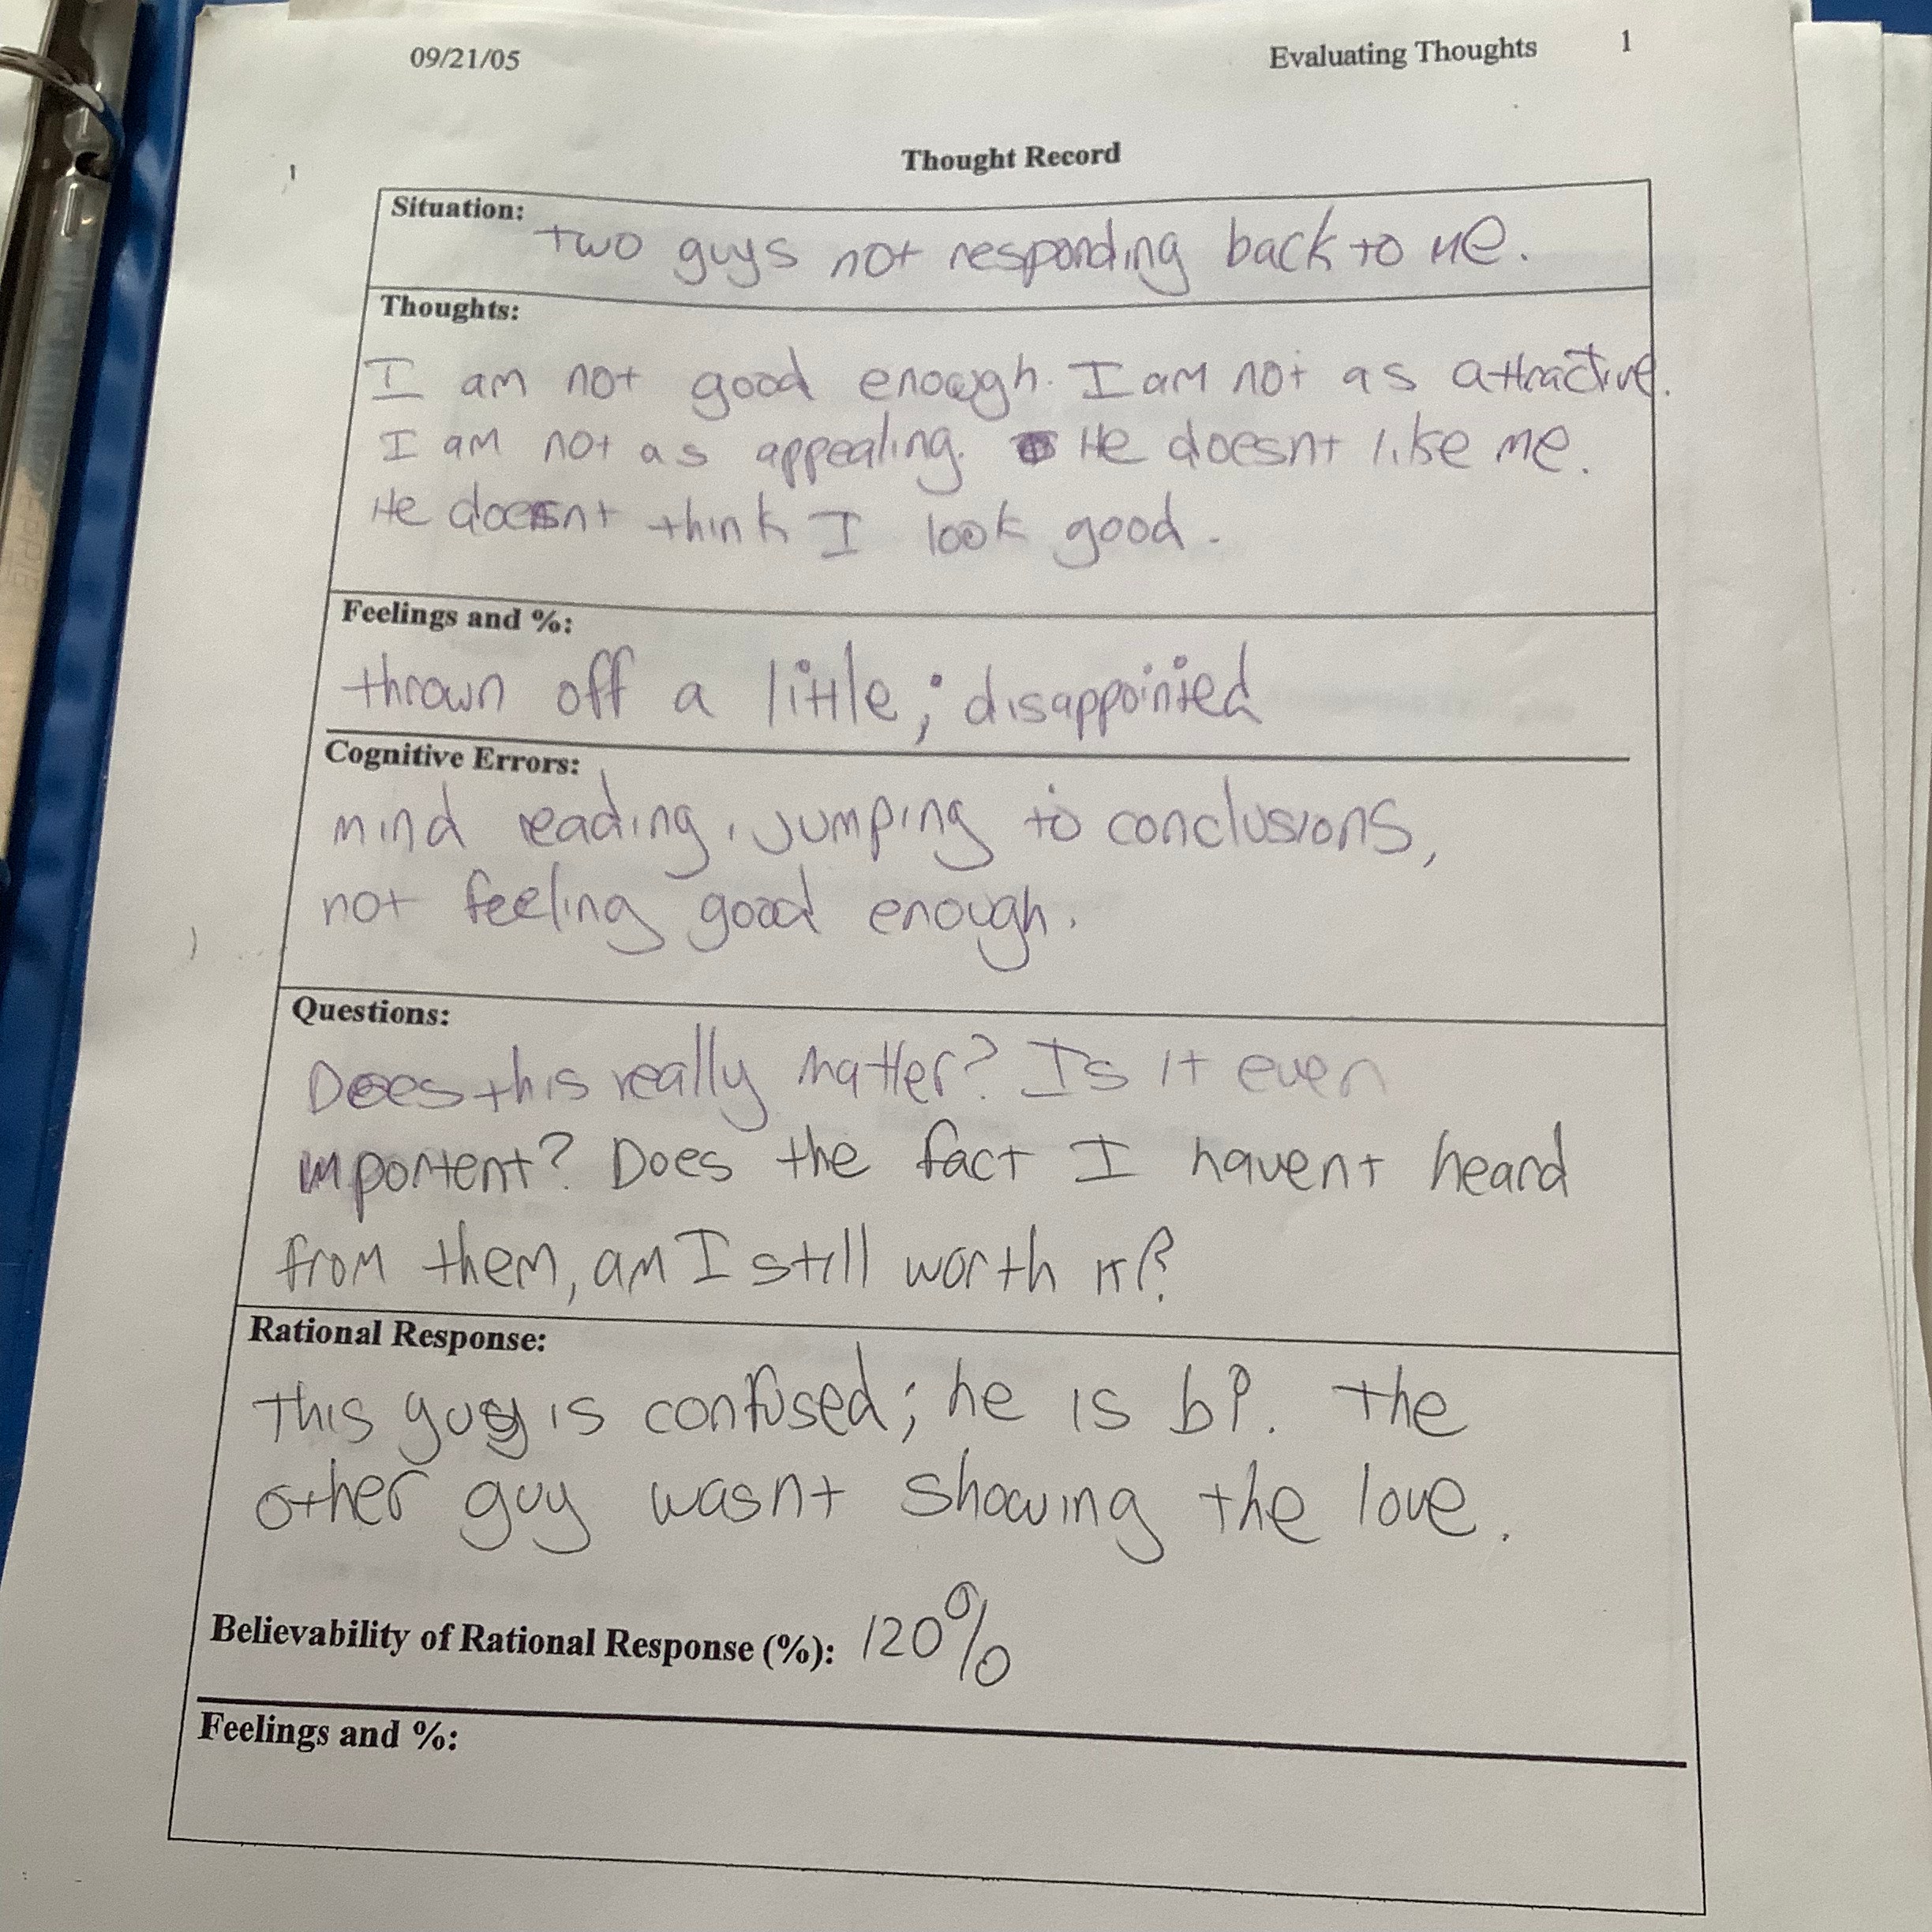 09/21/05 Evaluating Thoughts 1
Thought Record
Situation: two guys not responding back to me.
Thoughts:
I am not good enough. I am not as attractive.
I am not as appealing. He doesnt like me.
He doesnt think I look good.
Feelings and %:
thrown off a little; disappointed
Cognitive Errors:
mind reading, jumping to conclusions,
not feeling good enough.
Questions:
Does this really matter? Is it even
importent? Does the fact I havent heard
from them, am I still worth it?
Rational Response:
This guy is confused; he is bP. The
other guy wasnt showing the love.
Believability of Rational Response (%): 120%
Feelings and %: